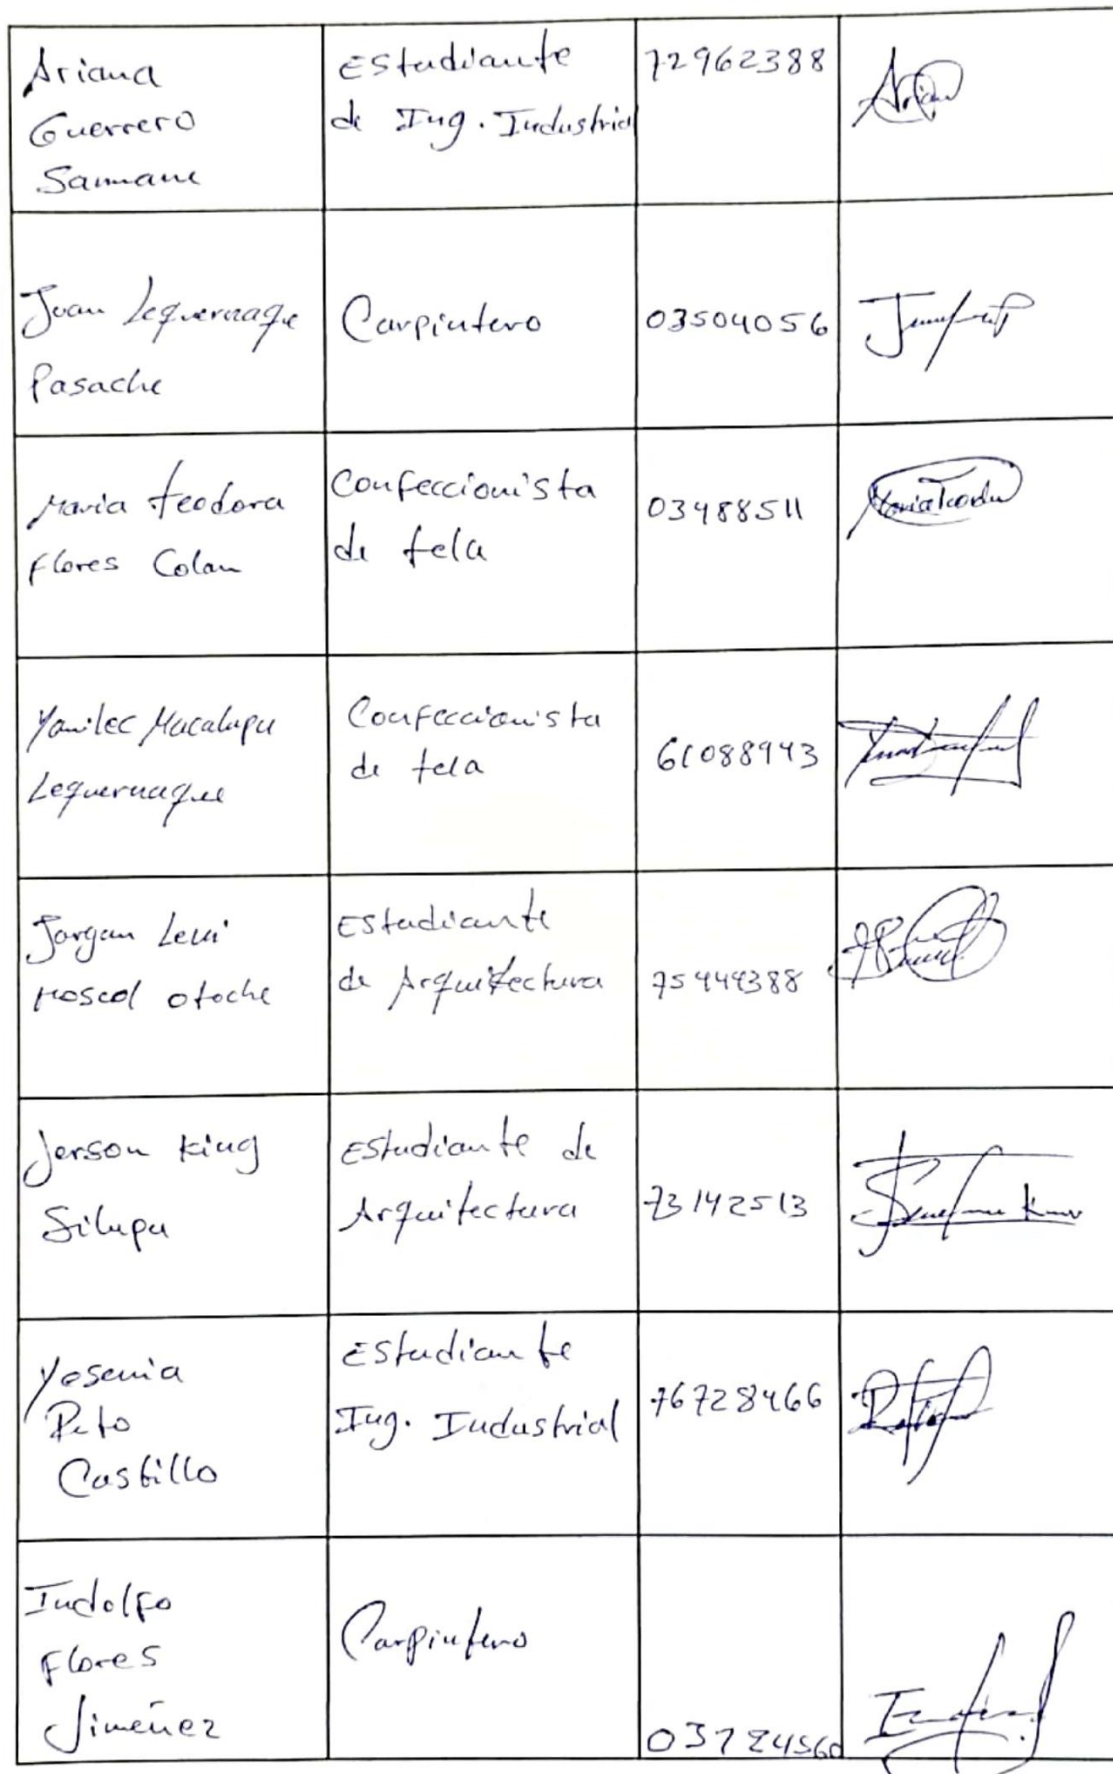 Ariana
Guerrero
Samane
Estudiante
de Ing. Industrial
72962388
Arian
Juan Lequernaque
Pasache
Carpintero
03504056
Maria teodora
Flores Colan
Confeccionista
de tela
03488511
Maria Teodor
Yamilec Macalupu
Lequernaque
Confeccionista
de tela
61088943
Jorgan Levi
Moscol Otoche
Estudiante
de Arquitectura
75444388
Jerson King
Silupu
Estudiante de
Arquitectura
73142513
Yesenia
Peto
Castillo
Estudiante
Ing. Industrial
76728466
Indolfo
Flores
Jimenez
Carpintero